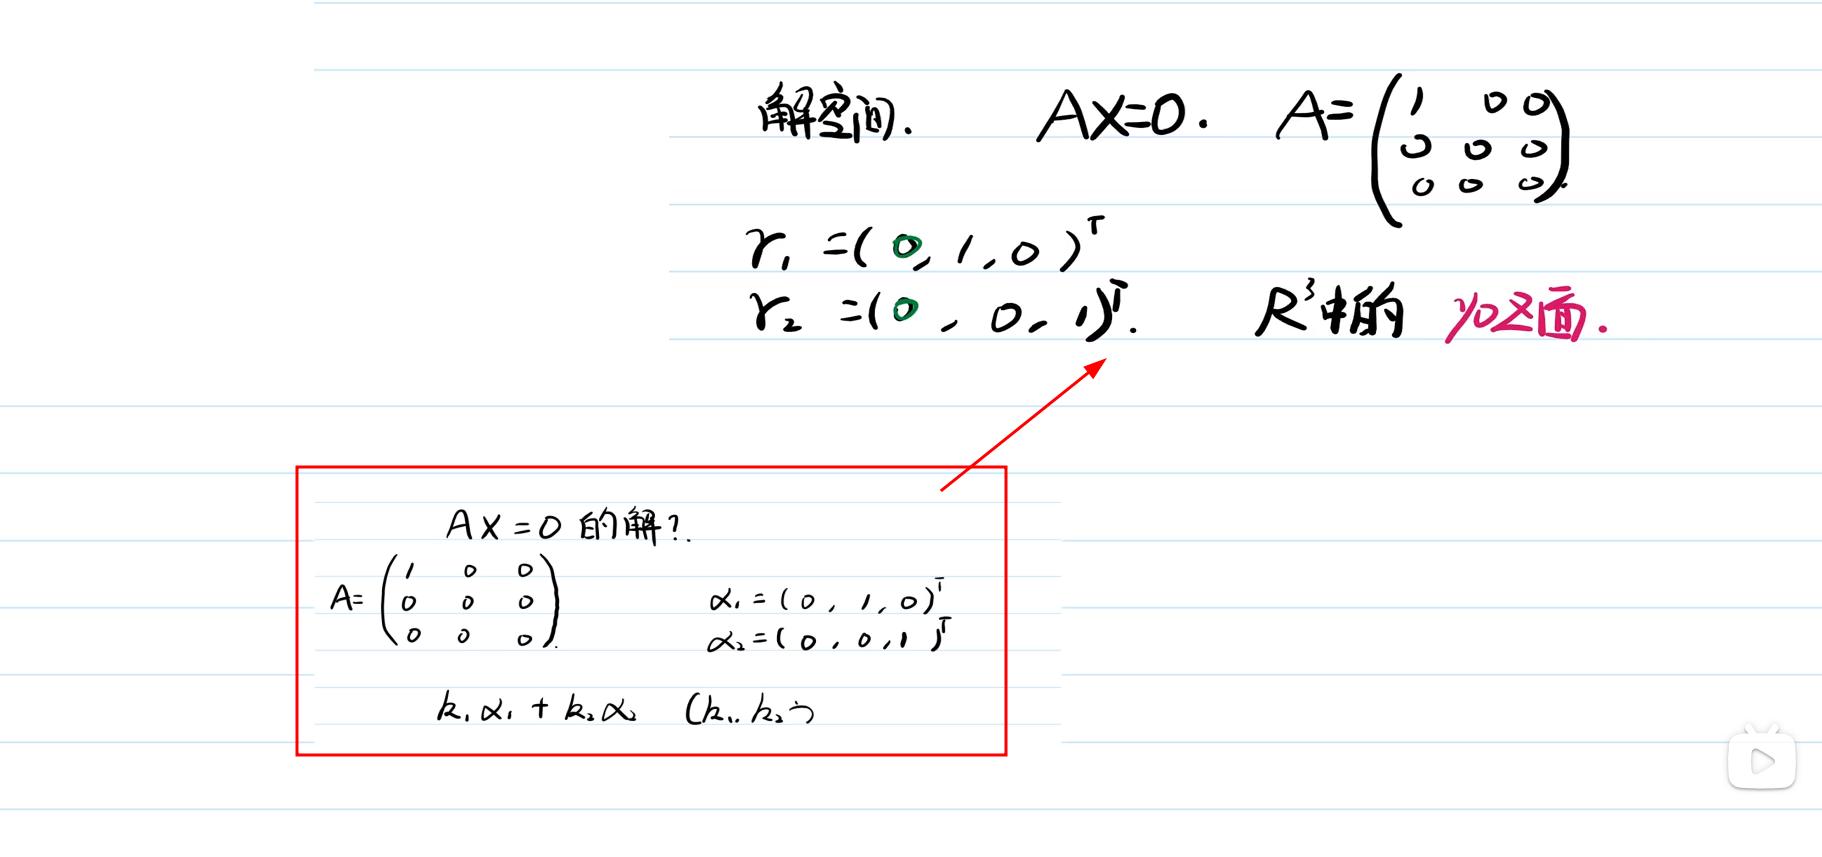 解空间. AX=0. A=(1 0 0
0 0 0
0 0 0).
γ₁ =(0, 1, 0)ᵀ
γ₂ =(0, 0, 1)ᵀ. R³中的 yoz面.
AX=0 的解?.
A=(1 0 0
0 0 0
0 0 0).
α₁=(0, 1, 0)ᵀ
α₂=(0, 0, 1)ᵀ
k₁α₁+k₂α₂ (k₁. k₂